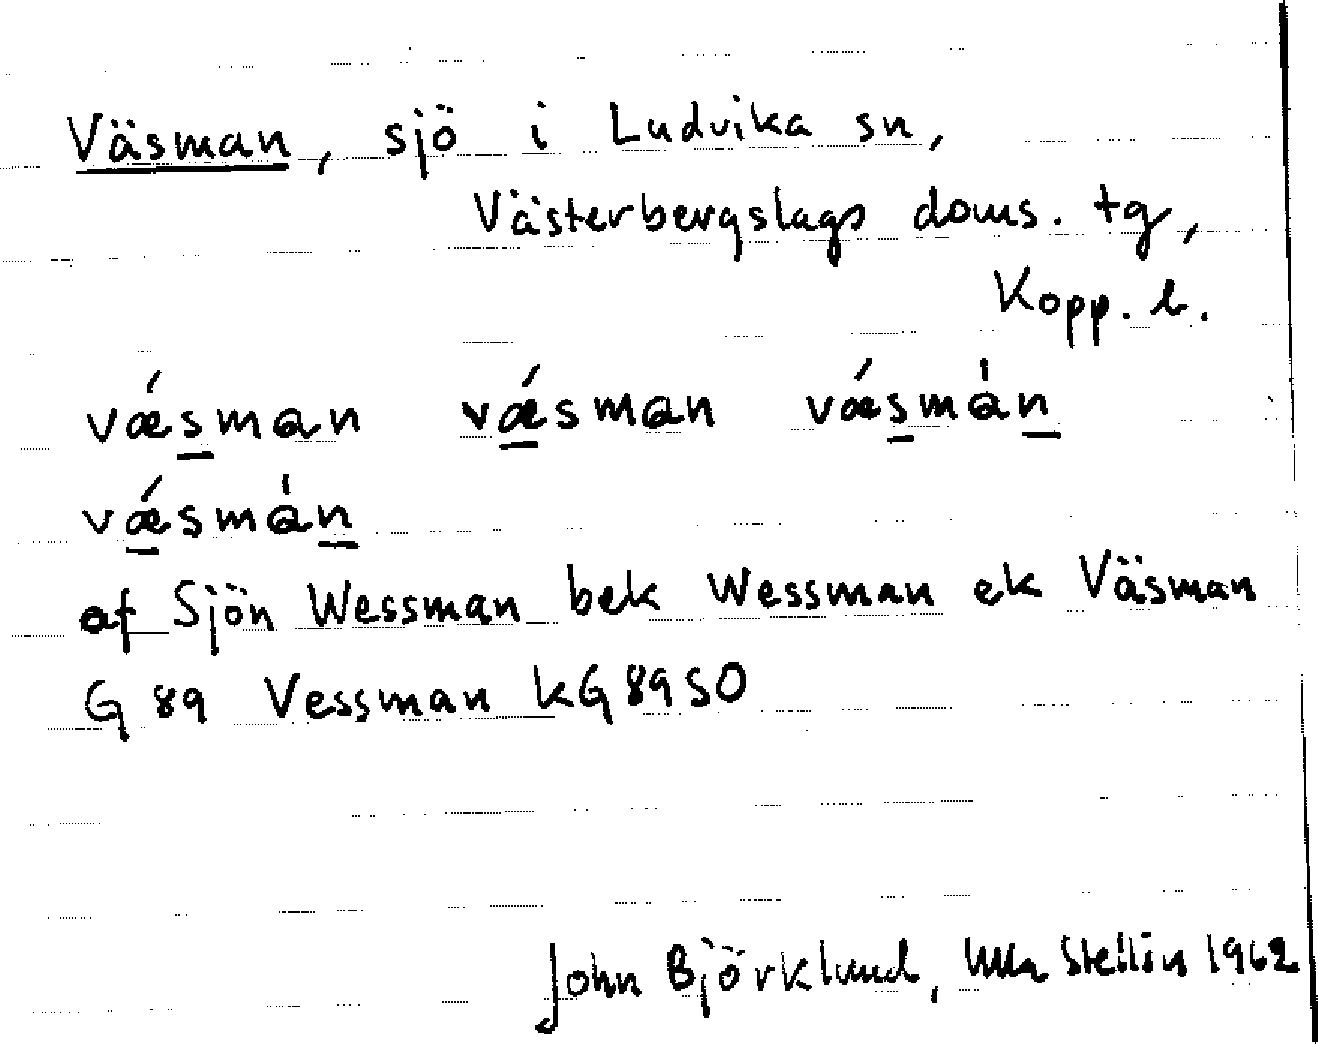 Väsman, sjö i Ludvika sn,
Västerbergslags doms. tg,
Kopp. l.
vǽsman vǽsman vǽsmàn
vǽsmàn
af Sjön Wessman bek Wessman ek Väsman
G 89 Vessman kG 89 SO
John Björklund, Ulla Stellin 1962